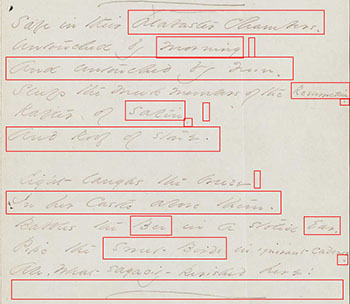 Safe in their Alabaster Chambers.
Untouched by Morning
And untouched by Noon.
Sleep the meek members of the Resurrection
Rafter of Satin,
And Roof of stone.
Light laughs the breeze
In her Castle above them.
Babbles the Bee in a stolid Ear.
Pipe the Sweet Birds in ignorant Cadence
Ah, What sagacity perished here!